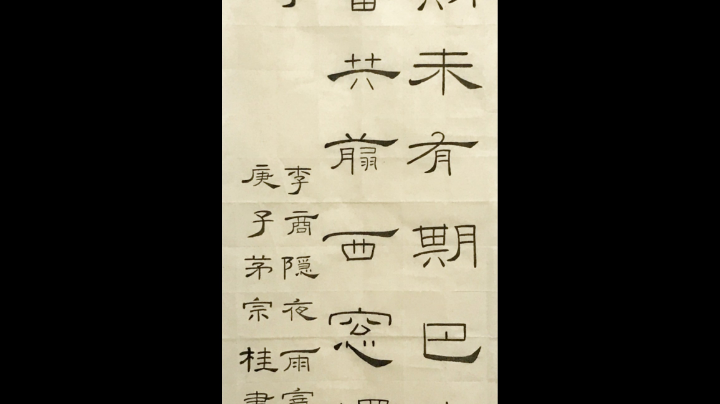 未有期巴
共翦西窓
李商隐夜雨寄
庚子茅宗桂書